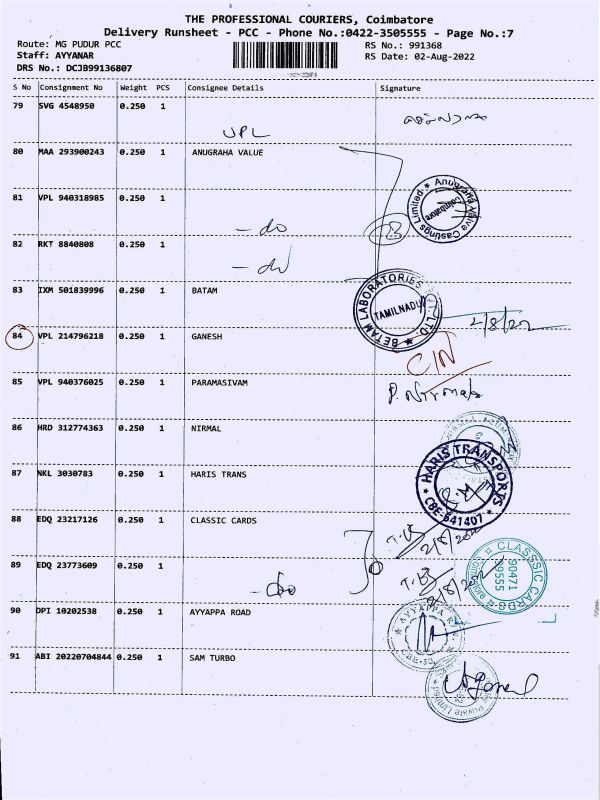 THE PROFESSIONAL COURIERS, Coimbatore
Delivery Runsheet - PCC - Phone No.:0422-3505555 - Page No.:7
Route: MG PUDUR PCC
RS No.: 991368
Staff: AYYANAR
RS Date: 02-Aug-2022
DRS No.: DCJB99136807
S No Consignment No Weight PCS Consignee Details Signature
79 SVG 4548950 0.250 1
UPL
80 MAA 293900243 0.250 1 ANUGRAHA VALUE
81 VPL 940318985 0.250 1
- do
Anugraha Valve Castings Limited
Coimbatore
82 RKT 8840808 0.250 1
- do
83 IXM 501839996 0.250 1 BATAM
BETAM LABORATORIES PVT. LTD.
TAMILNADU
2/8/22
84 VPL 214796218 0.250 1 GANESH
C/N
85 VPL 940376025 0.250 1 PARAMASIVAM
P. Nirmala
86 HRD 312774363 0.250 1 NIRMAL
87 NKL 3030783 0.250 1 HARIS TRANS
HARIS TRANSPORTS
CBE-641407
88 EDQ 23217126 0.250 1 CLASSIC CARDS
89 EDQ 23773609 0.250 1
- do
CLASSSIC CARDS
90471
99555
90 DPI 10202538 0.250 1 AYYAPPA ROAD
AYYAPPA
CBE-30
91 ABI 20220704844 0.250 1 SAM TURBO
Private Limited